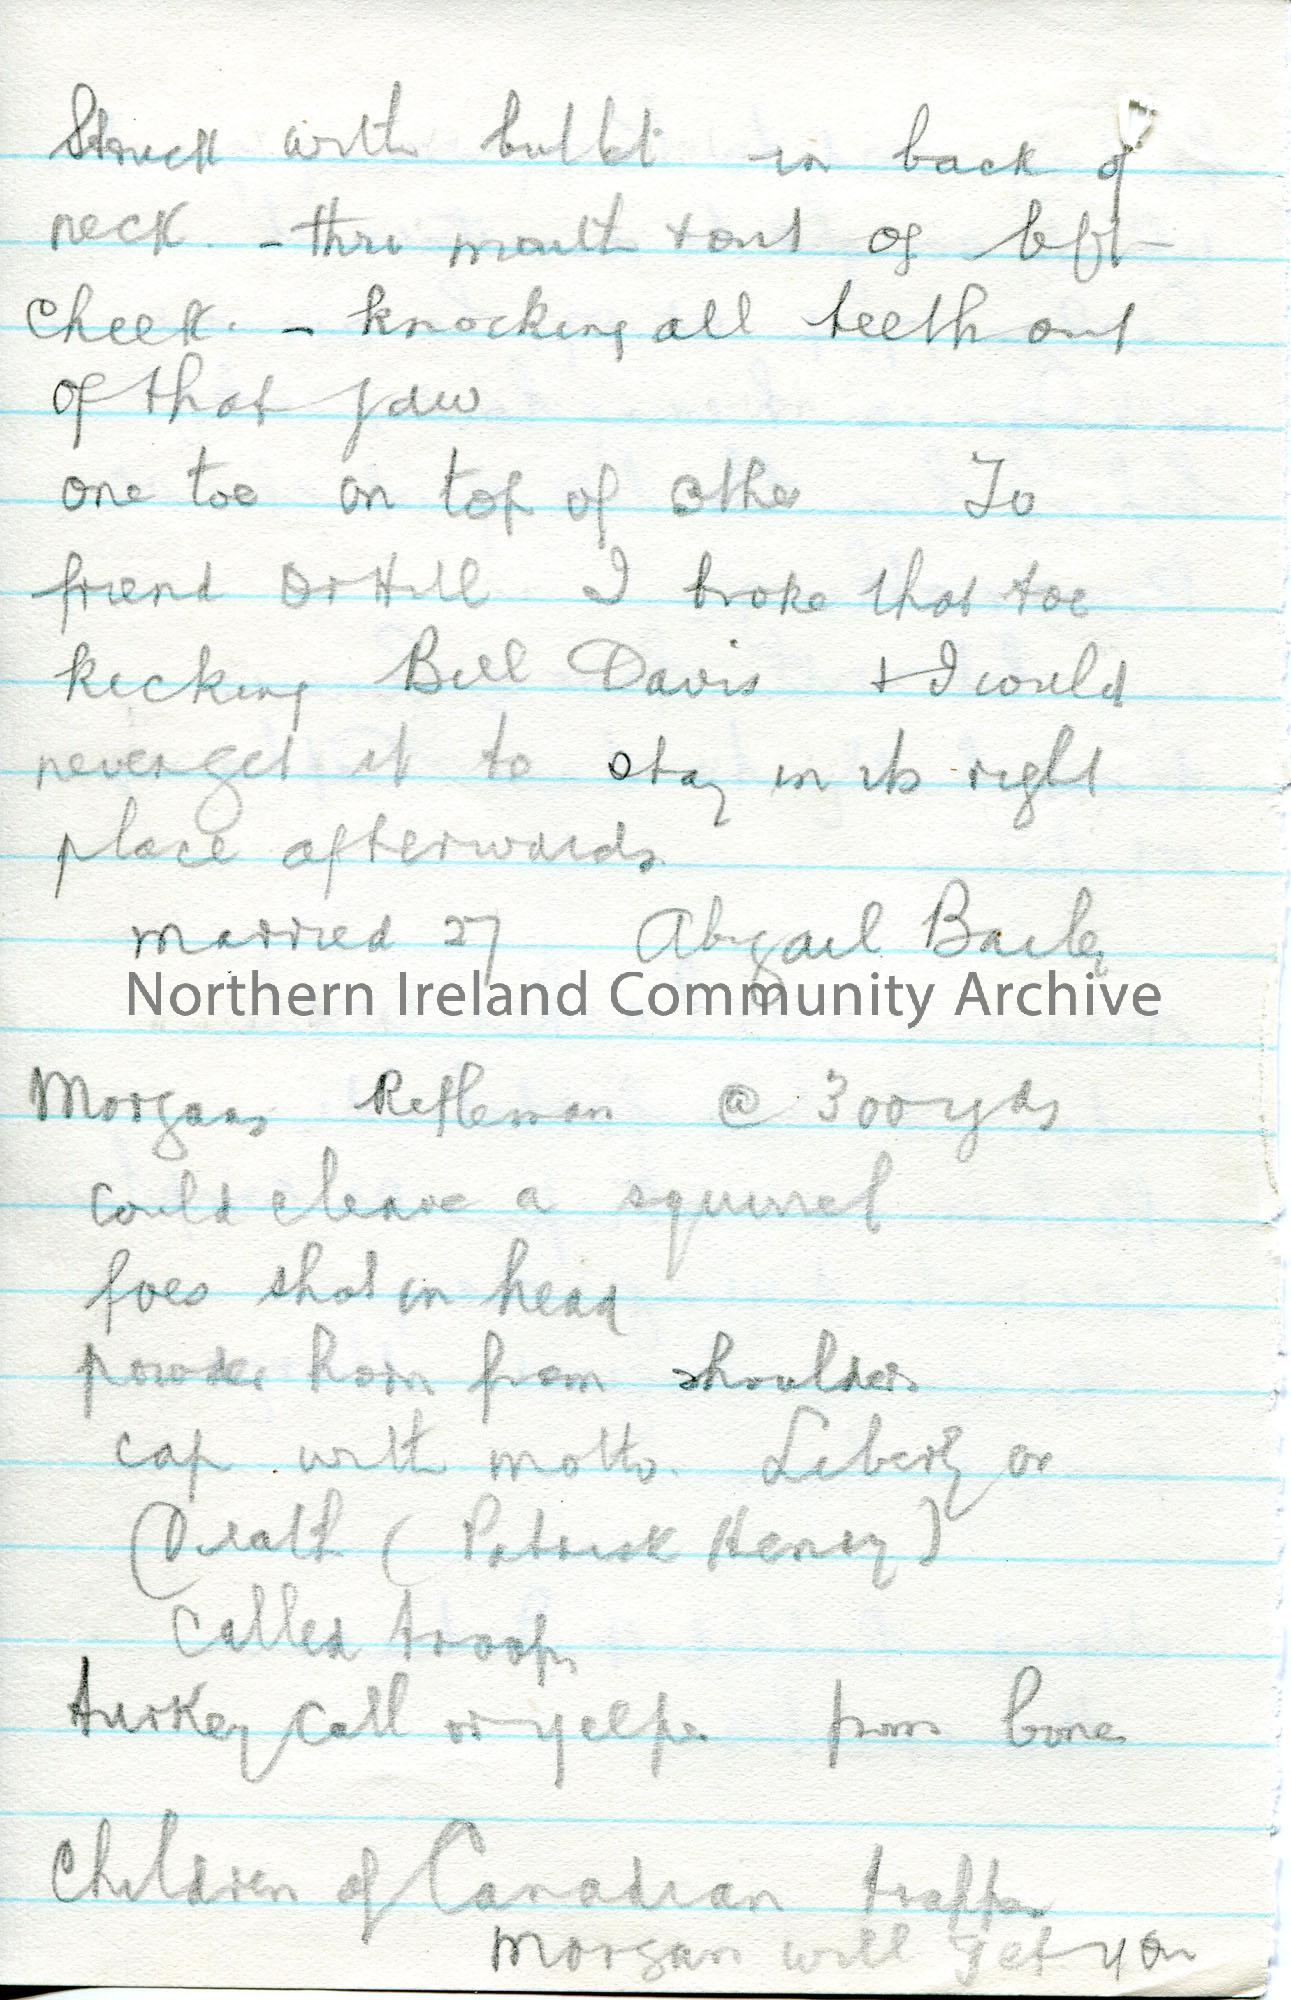 Struck with bullet in back of
neck. - thru mouth + out of left
cheek. - knocking all teeth out
of that jaw
one toe on top of other To
friend Dr Hill I broke that toe
kicking Bill Davis + I could
never get it to stay in its right
place afterwards
married 27 Abigail Bailey
Northern Ireland Community Archive
Morgans Rifleman @ 300 yds
could cleave a squirrel
foes shot in head
powder horn from shoulders
cap with motto. Liberty or
Death (Patrick Henry)
called troops
turkey call or yelper from bone
Children of Canadian trapper
Morgan will get you